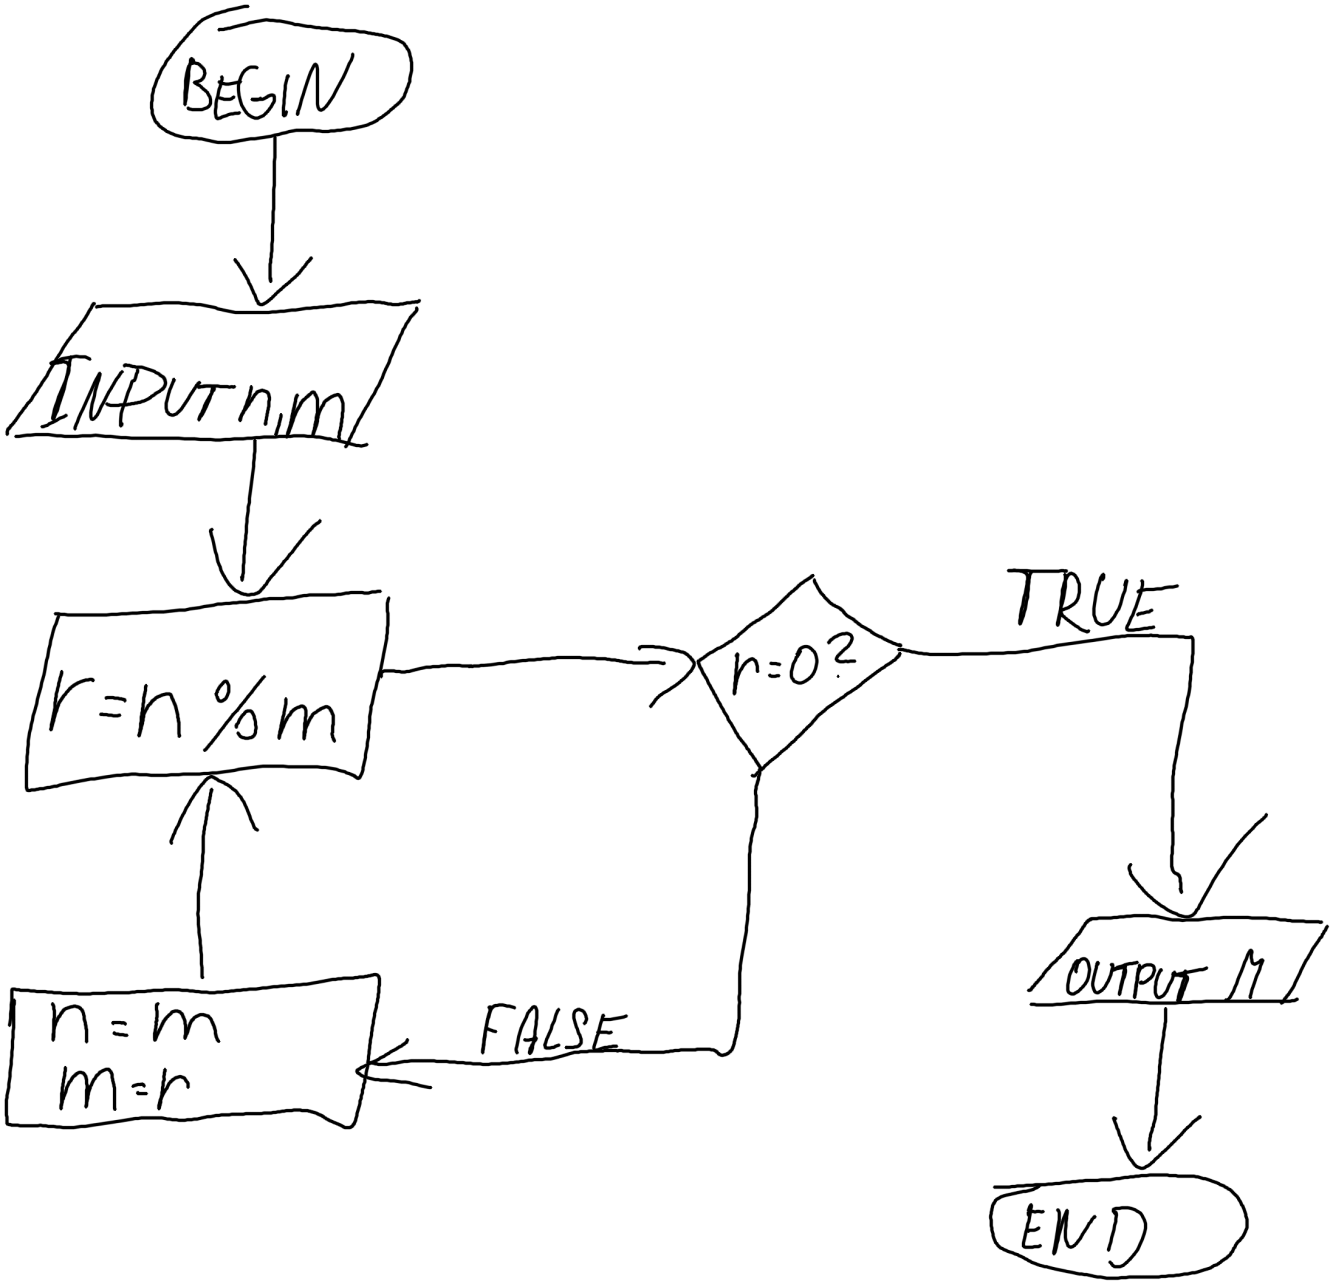 BEGIN
INPUT n,m
r=n%m
r=0?
TRUE
FALSE
n=m
m=r
OUTPUT M
END